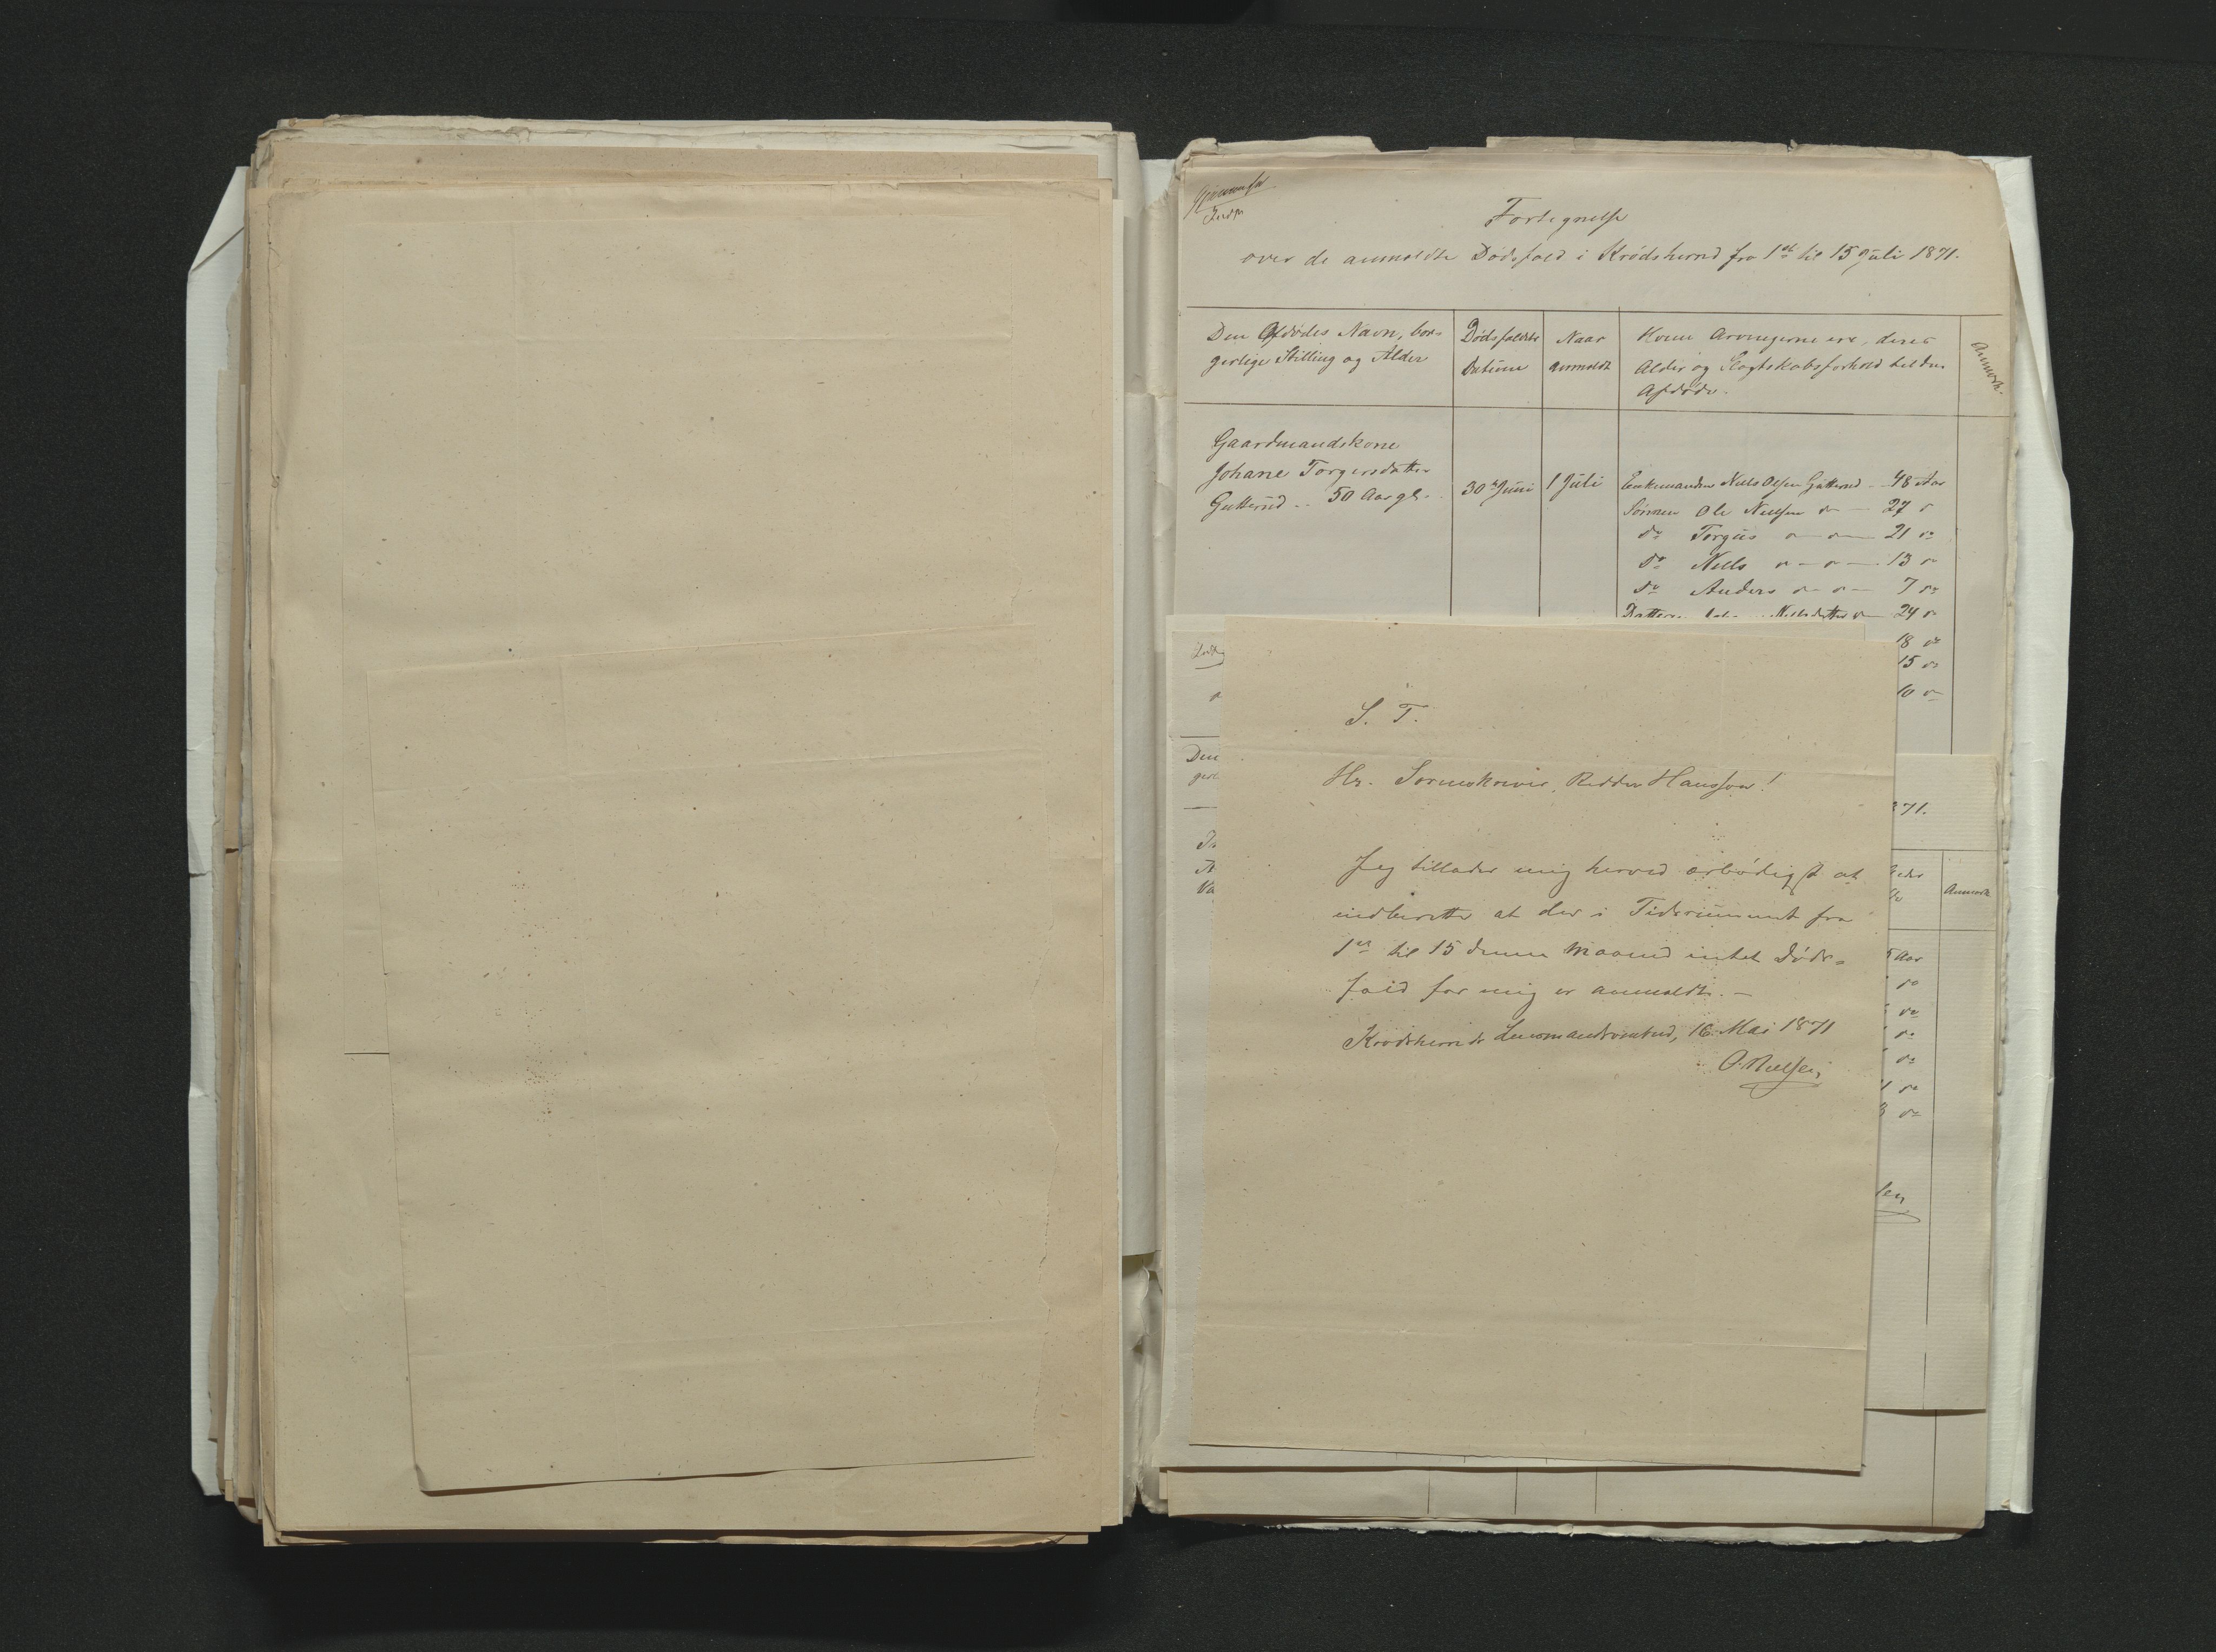 Fortegnelse
over de anmeldte Dødsfald i Krødsherred fra 1st til 15 Juli 1871.
Den Afdødes Navn, bor-
gerlige Stilling og Alder
Dødsfaldets
Datum
Naar
anmeldt
Hvem Arvingerne ere, deres
Alder og Slægtskabsforhold til den
Afdøde.
Anmærk.
Gaardmandskone
Johane Torgersdatter
Gutterud .. 50 Aar gl.
30te Juni
1 Juli
Enkemanden Niels Olsen Gutterud 48 Aar
Sønnen Ole Nielsen do 27 do
do Torgus do do 21 do
do Niels do do 13 do
do Anders do do 7 do
Datteren Nielsdatter do 24 do
18 do
15 do
10 do
S. T.
Hr. Sorenskriver, Ridder Hansson!
Jeg tillader mig herved ærbødigst at
indberette at der i Tidsrummet fra
1st til 15 denne Maaned intet Døds-
fald for mig er anmeldt. —
Krødsherreds Lensmandsombud, 16 Mai 1871
O. Nielsen
Den
871.
Anmærk
5 Aar
do
do
do
do
1 do
do
sen